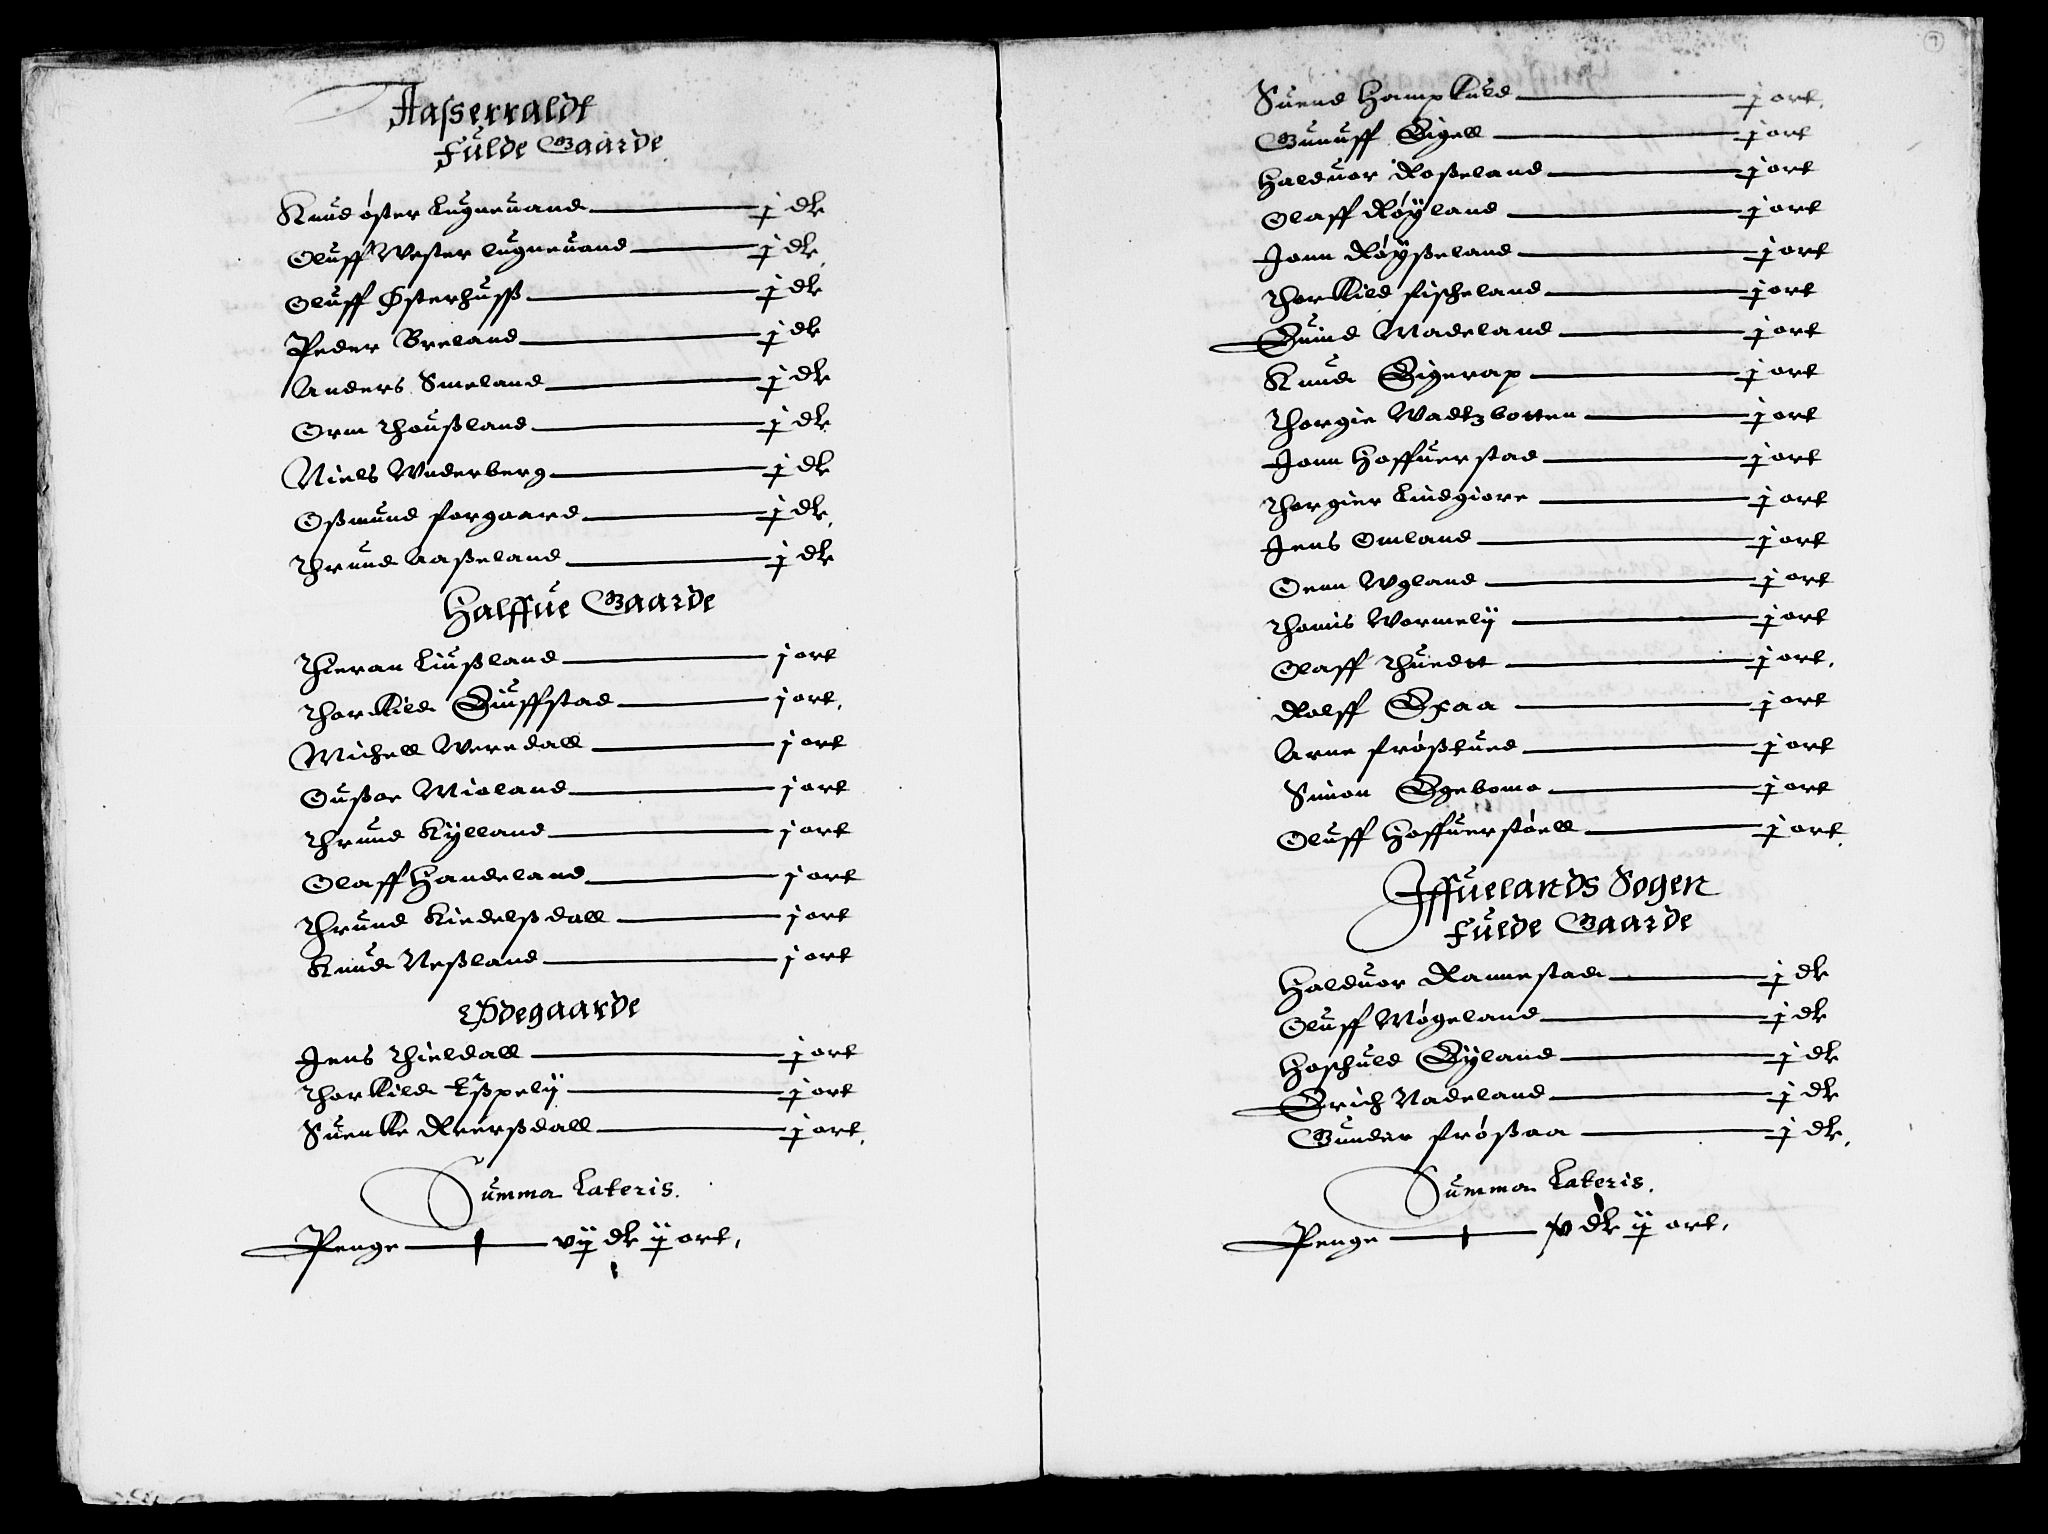 Aasserraldt
Fulde Gaarde
Knud øster Lugneuand j dlr
Oluff Wester lugneuand j dlr
Oluff Østerhuss j dlr
Peder Breland j dlr
Anders Smeland j dlr
Orm Thoußland j dlr
Niels Wederberg j dlr
Oßmund forgaard j dlr
Thrund Aaßeland j dlr
Halffue Gaarde
Thieran Liußland j ort
Thorkild Siuffstad j ort
Michell Weredall j ort
Gußae Mioland j ort
Thrund Kylland j ort
Olaff Handeland j ort
Thrund Kiedelßdall j ort
Knud Neßland j ort
Ødegaarde
Jens Thieldall j ort
Thorkild Eßpelij j ort
Suenke Reerßdall j ort
Summa Lateris.
Penge vij dlr ij ort,
Suend Hampkuld j ort
Gunuff Eigell j ort
Halduor Roßeland j ort
Olaff Røyland j ort
Jonn Røyßeland j ort
Thorkild fischeland j ort
Suind Madeland j ort
Knud Eigerap j ort
Thorgie Wadtzbotten j ort
Jonn Hoffuerstad j ort
Thorgier Lindgiore j ort
Jens Omland j ort
Oenn Wgland j ort
Thomis Wormelij j ort
Olaff Thuedtt j ort
Rolff Espaa j ort
Arne frøßtued j ort
Simon Egebomo j ort
Oluff Hoffuerstøell j ort
Iffuelands Sogen
Fulde Gaarde
Halduor Rannestad j dlr
Oluff Møgeland j dlr
Hoschuld Eyland j dlr
Erich Nadeland j dlr
Gunder frøßaa j dlr
Summa Lateris.
Penge x dlr ij ort,